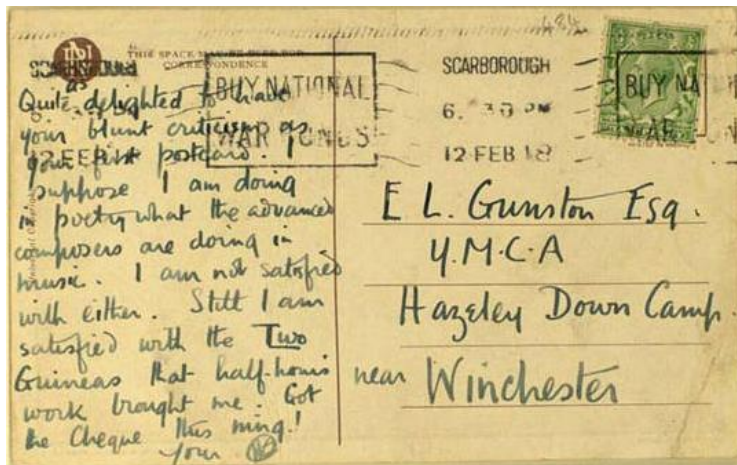 484
THIS SPACE MAY BE USED FOR
CORRESPONDENCE
SCARBOROUGH
BUY NATIONAL
WAR BONDS
SCARBOROUGH
6. 30 PM
12 FEB 18
BUY NAT
WAR
12 FEB 18
as
Quite delighted to have
your blunt criticism as
your first postcard. I
suppose I am doing
in poetry what the advanced
composers are doing in
music. I am not satisfied
with either. Still I am
satisfied with the Two
Guineas that half-hour's
work brought me. Got
the Cheque this mng.!
Your
E L. Gunston Esq.
Y.M.C.A
Hazeley Down Camp.
near Winchester